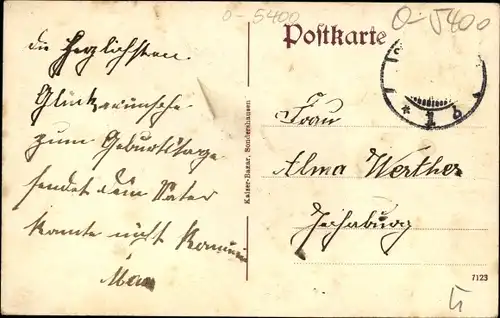 0-5400
Postkarte
0-5400
die Herzlichsten
Glückwünsche
zum Geburtstage
sendet dein Vater
konnte nicht kommen
Frau
Alma Werther
Jechaburg
Kaiser-Bazar, Sondershausen
7123